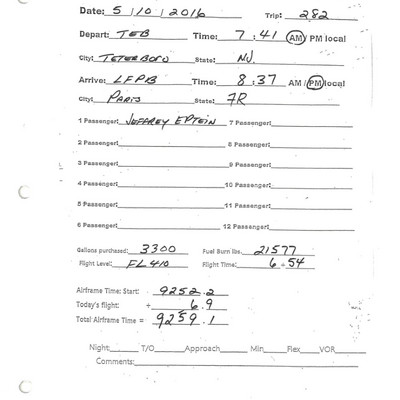 Date: 5 / 10 / 2016 Trip: 282
Depart: TEB Time: 7 : 41 AM/ PM local
City: TETERBORO State: NJ.
Arrive: LFPB Time: 8 : 37 AM /PM local
City: PARIS State: FR
1 Passenger: JEFFREY EPTEIN 7 Passenger:
2 Passenger: 8 Passenger:
3 Passenger: 9 Passenger:
4 Passenger: 10 Passenger:
5 Passenger: 11 Passenger:
6 Passenger: 12 Passenger:
Gallons purchased: 3300 Fuel Burn lbs. 21577
Flight Level: FL410 Flight Time: 6 + 54
Airframe Time: Start: 9252.2
Today's flight: + 6.9
Total Airframe Time = 9259.1
Night: T/O Approach Min Flex VOR
Comments: